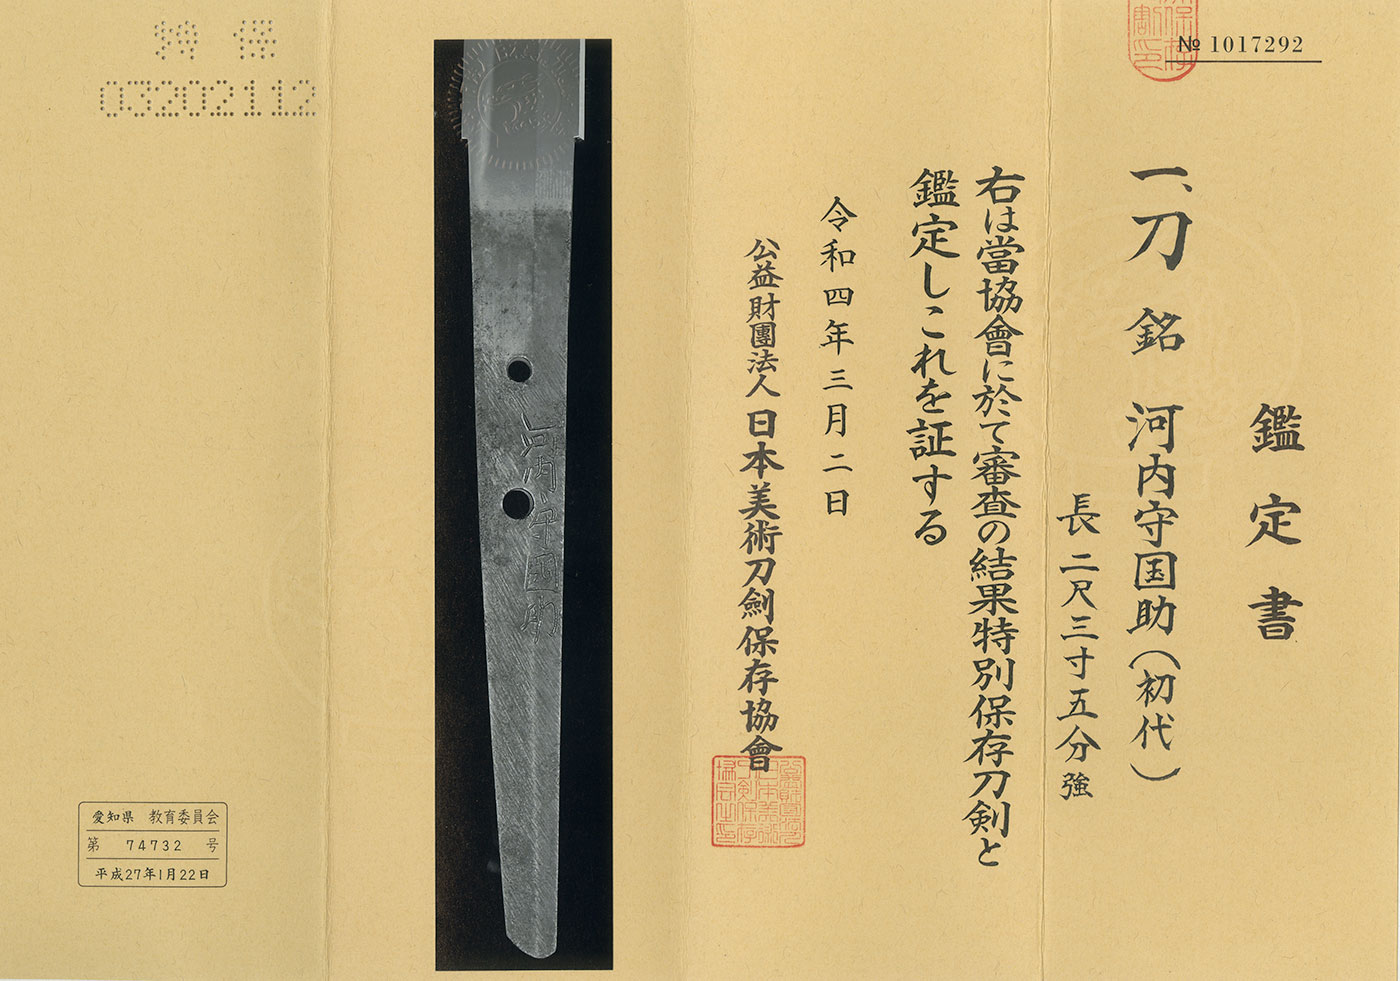 № 1017292
鑑定書
一、刀 銘 河内守国助（初代）
長二尺三寸五分強
右は當協會に於て審査の結果特別保存刀剣と
鑑定しこれを証する
令和四年三月二日
公益財團法人 日本美術刀劍保存協會
河内守國助
特保
03202112
愛知県 教育委員会
第 74732 号
平成27年1月22日